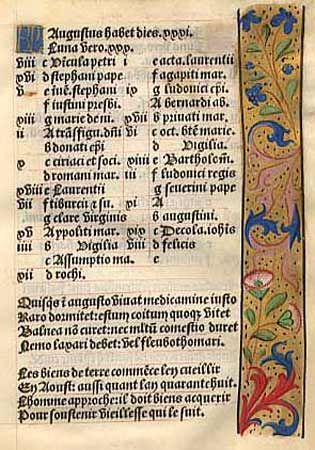 Augustus habet dies. xxxi.
Luna vero. xxx.
viii c Vīcula petri i e acta. laurentii
xvi d stephani pape f agapiti mar.
v e inē. stephani ix g ludouici ep̄i
f iustini presbi. A bernardi ab.
xiii g marie de ni. xvii b priuati mar.
ii A trāsfigu. dn̄i vi c oct. bt̄e marie.
b donati ep̄i d Vigilia.
x c ciriaci et soci. xiiii e Bartholom̄.
d romani mar. iii f ludouici regis
xviii e Laurentii g seuerini pape
vii f tiburcii et su. xi A
g clare virginis b augustini.
xv A ypoliti mar. xix c Decola. ioh̄is
iiii B Vigilia viii d felicis
c Assumptio ma. e
xii d rochi.
Quisq̄s ī augusto viuat medicamine iusto
Raro dormitet: estum coitum quoqȝ vitet
Balnea nō curet: nec mltū comestio duret
Nemo laxari debet: vel fleubothomari.
Les biens de terre commēce len cueillir
En Aoust: aussi quant lan quarante huit.
Lhomme approche: il doit biens acquerir
Pour soustenir vieillesse qui le suit.